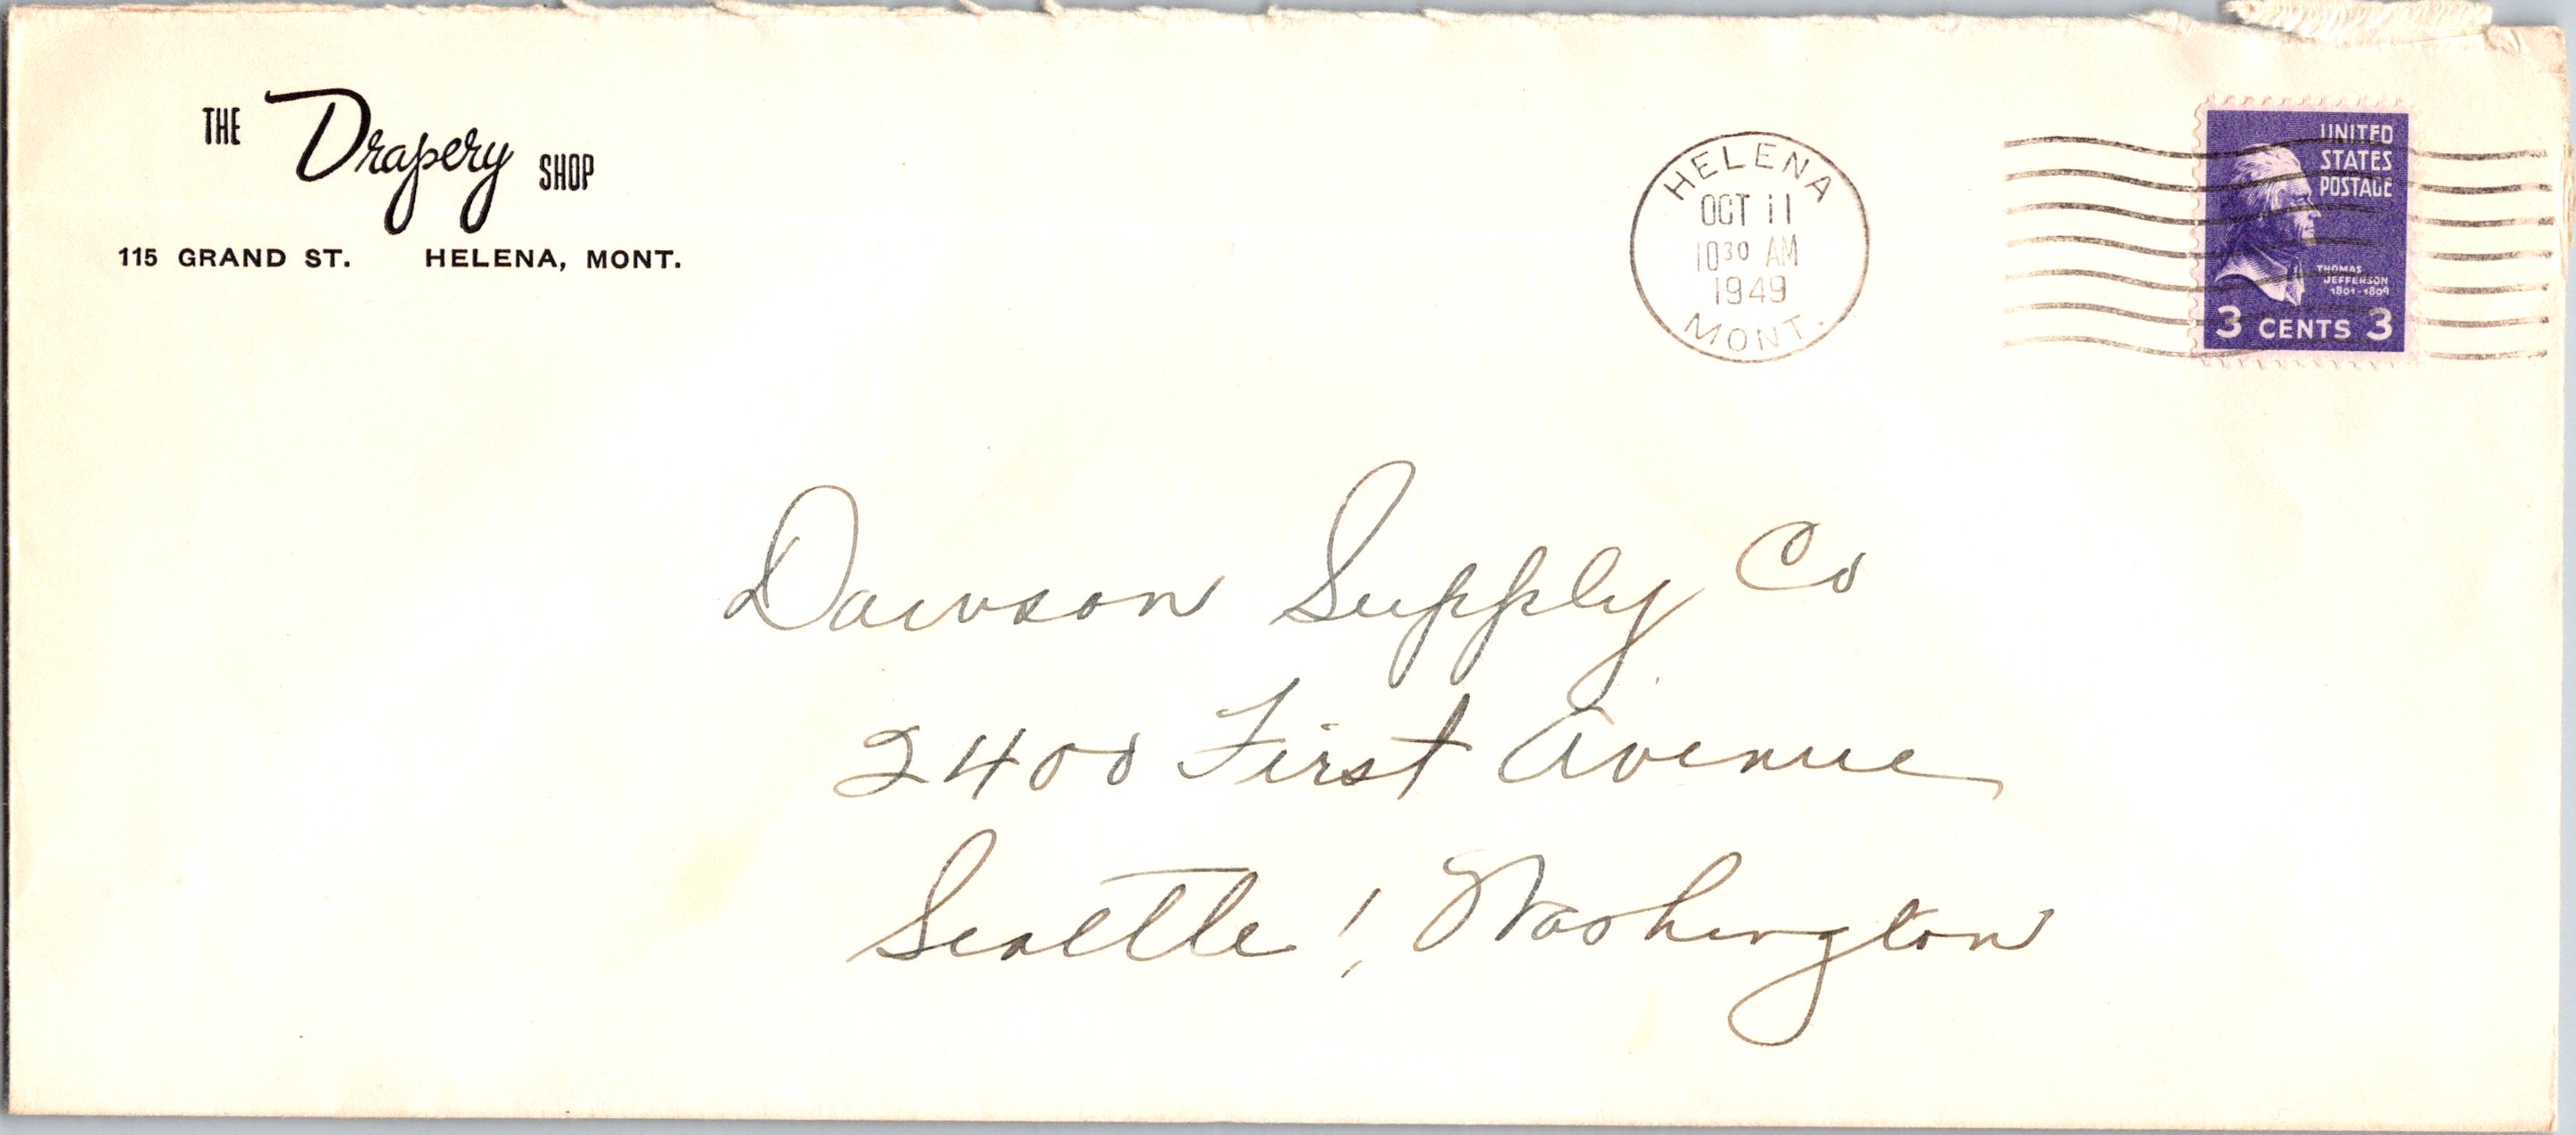 THE Drapery SHOP
115 GRAND ST. HELENA, MONT.
HELENA
OCT 11
10 30 AM
1949
MONT.
UNITED
STATES
POSTAGE
THOMAS
JEFFERSON
1801-1809
3 CENTS 3
Dawson Supply Co
2400 First Avenue
Seattle, Washington